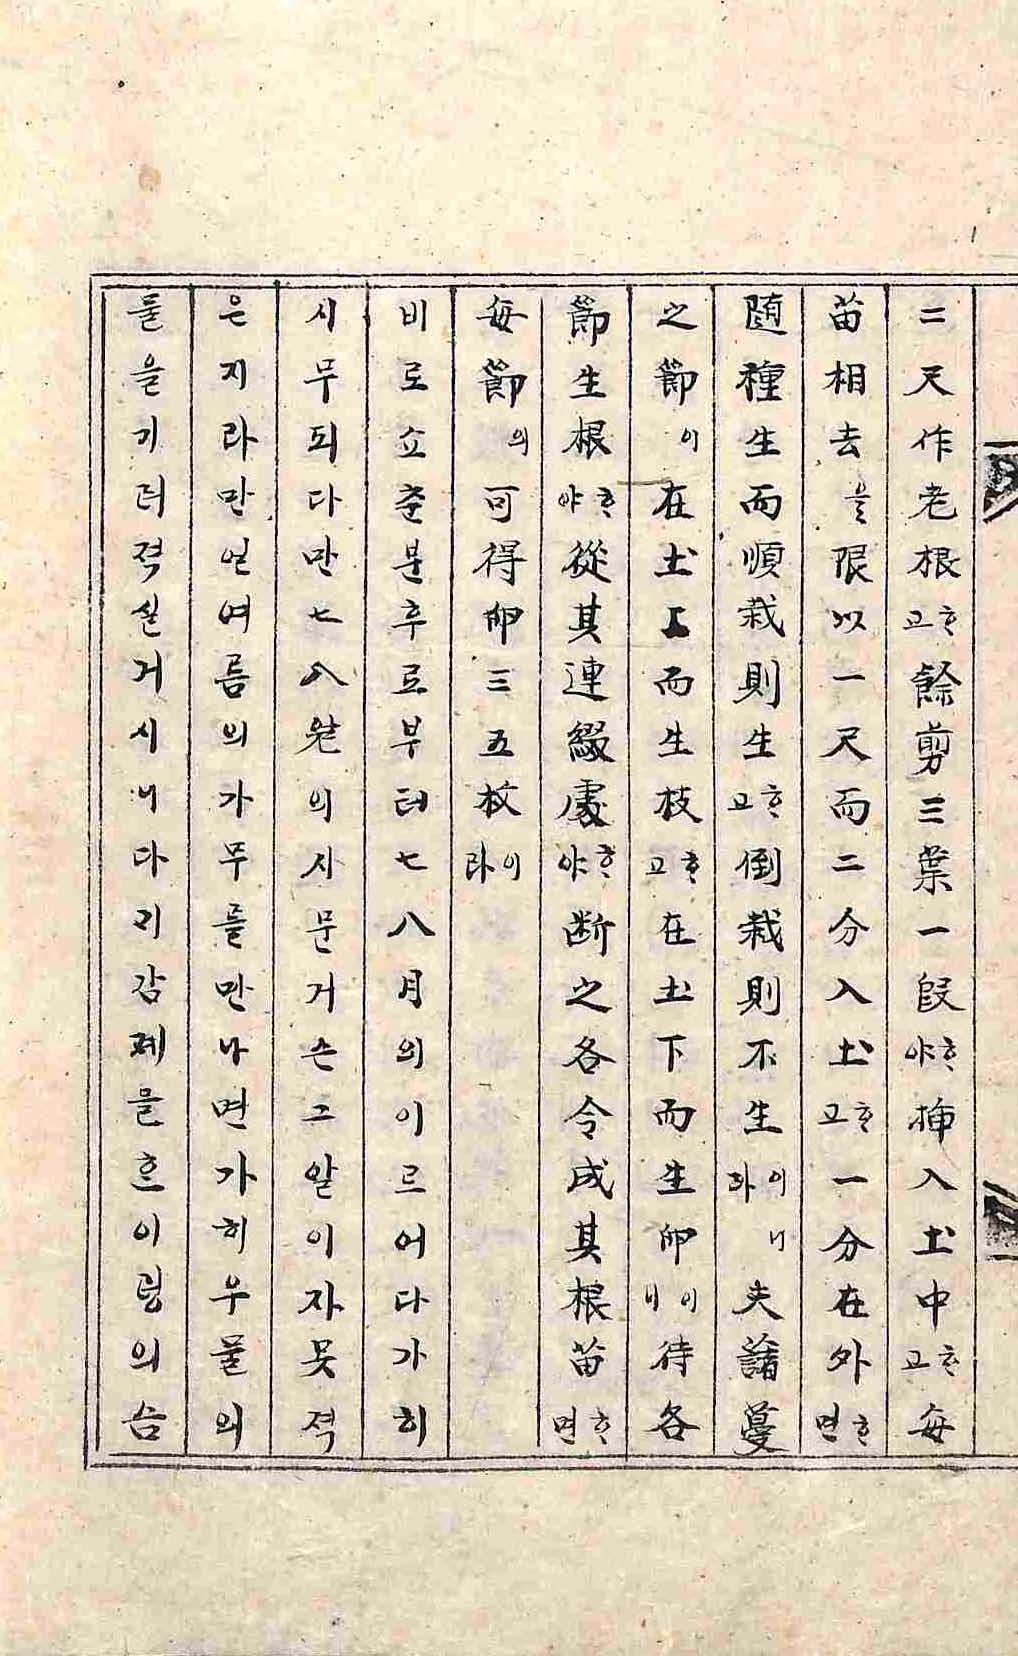 二尺作老根ᄒᆞ고餘剪三葉一段ᄒᆞ야揷入土中ᄒᆞ고每
苗相去을限以一尺而二分入土ᄒᆞ고一分在外ᄒᆞ면
随種生而順栽則生ᄒᆞ고倒栽則不生이라니夫藷蔓
之節이在土上而生枝ᄒᆞ고在土下而生卵이니待各
節生根ᄒᆞ야從其連綴處ᄒᆞ야断之各令成其根苗ᄒᆞ면
每節의可得卵三五枚이라
비로쇼츈분후로부터七八月의이르어다가히
시무되다만七八월의시문거슨그알이자못젹
은지라만일여름의가무믈만나면가히우물의
물을기러젹실거시니다리감졔믈흔이렁의슴